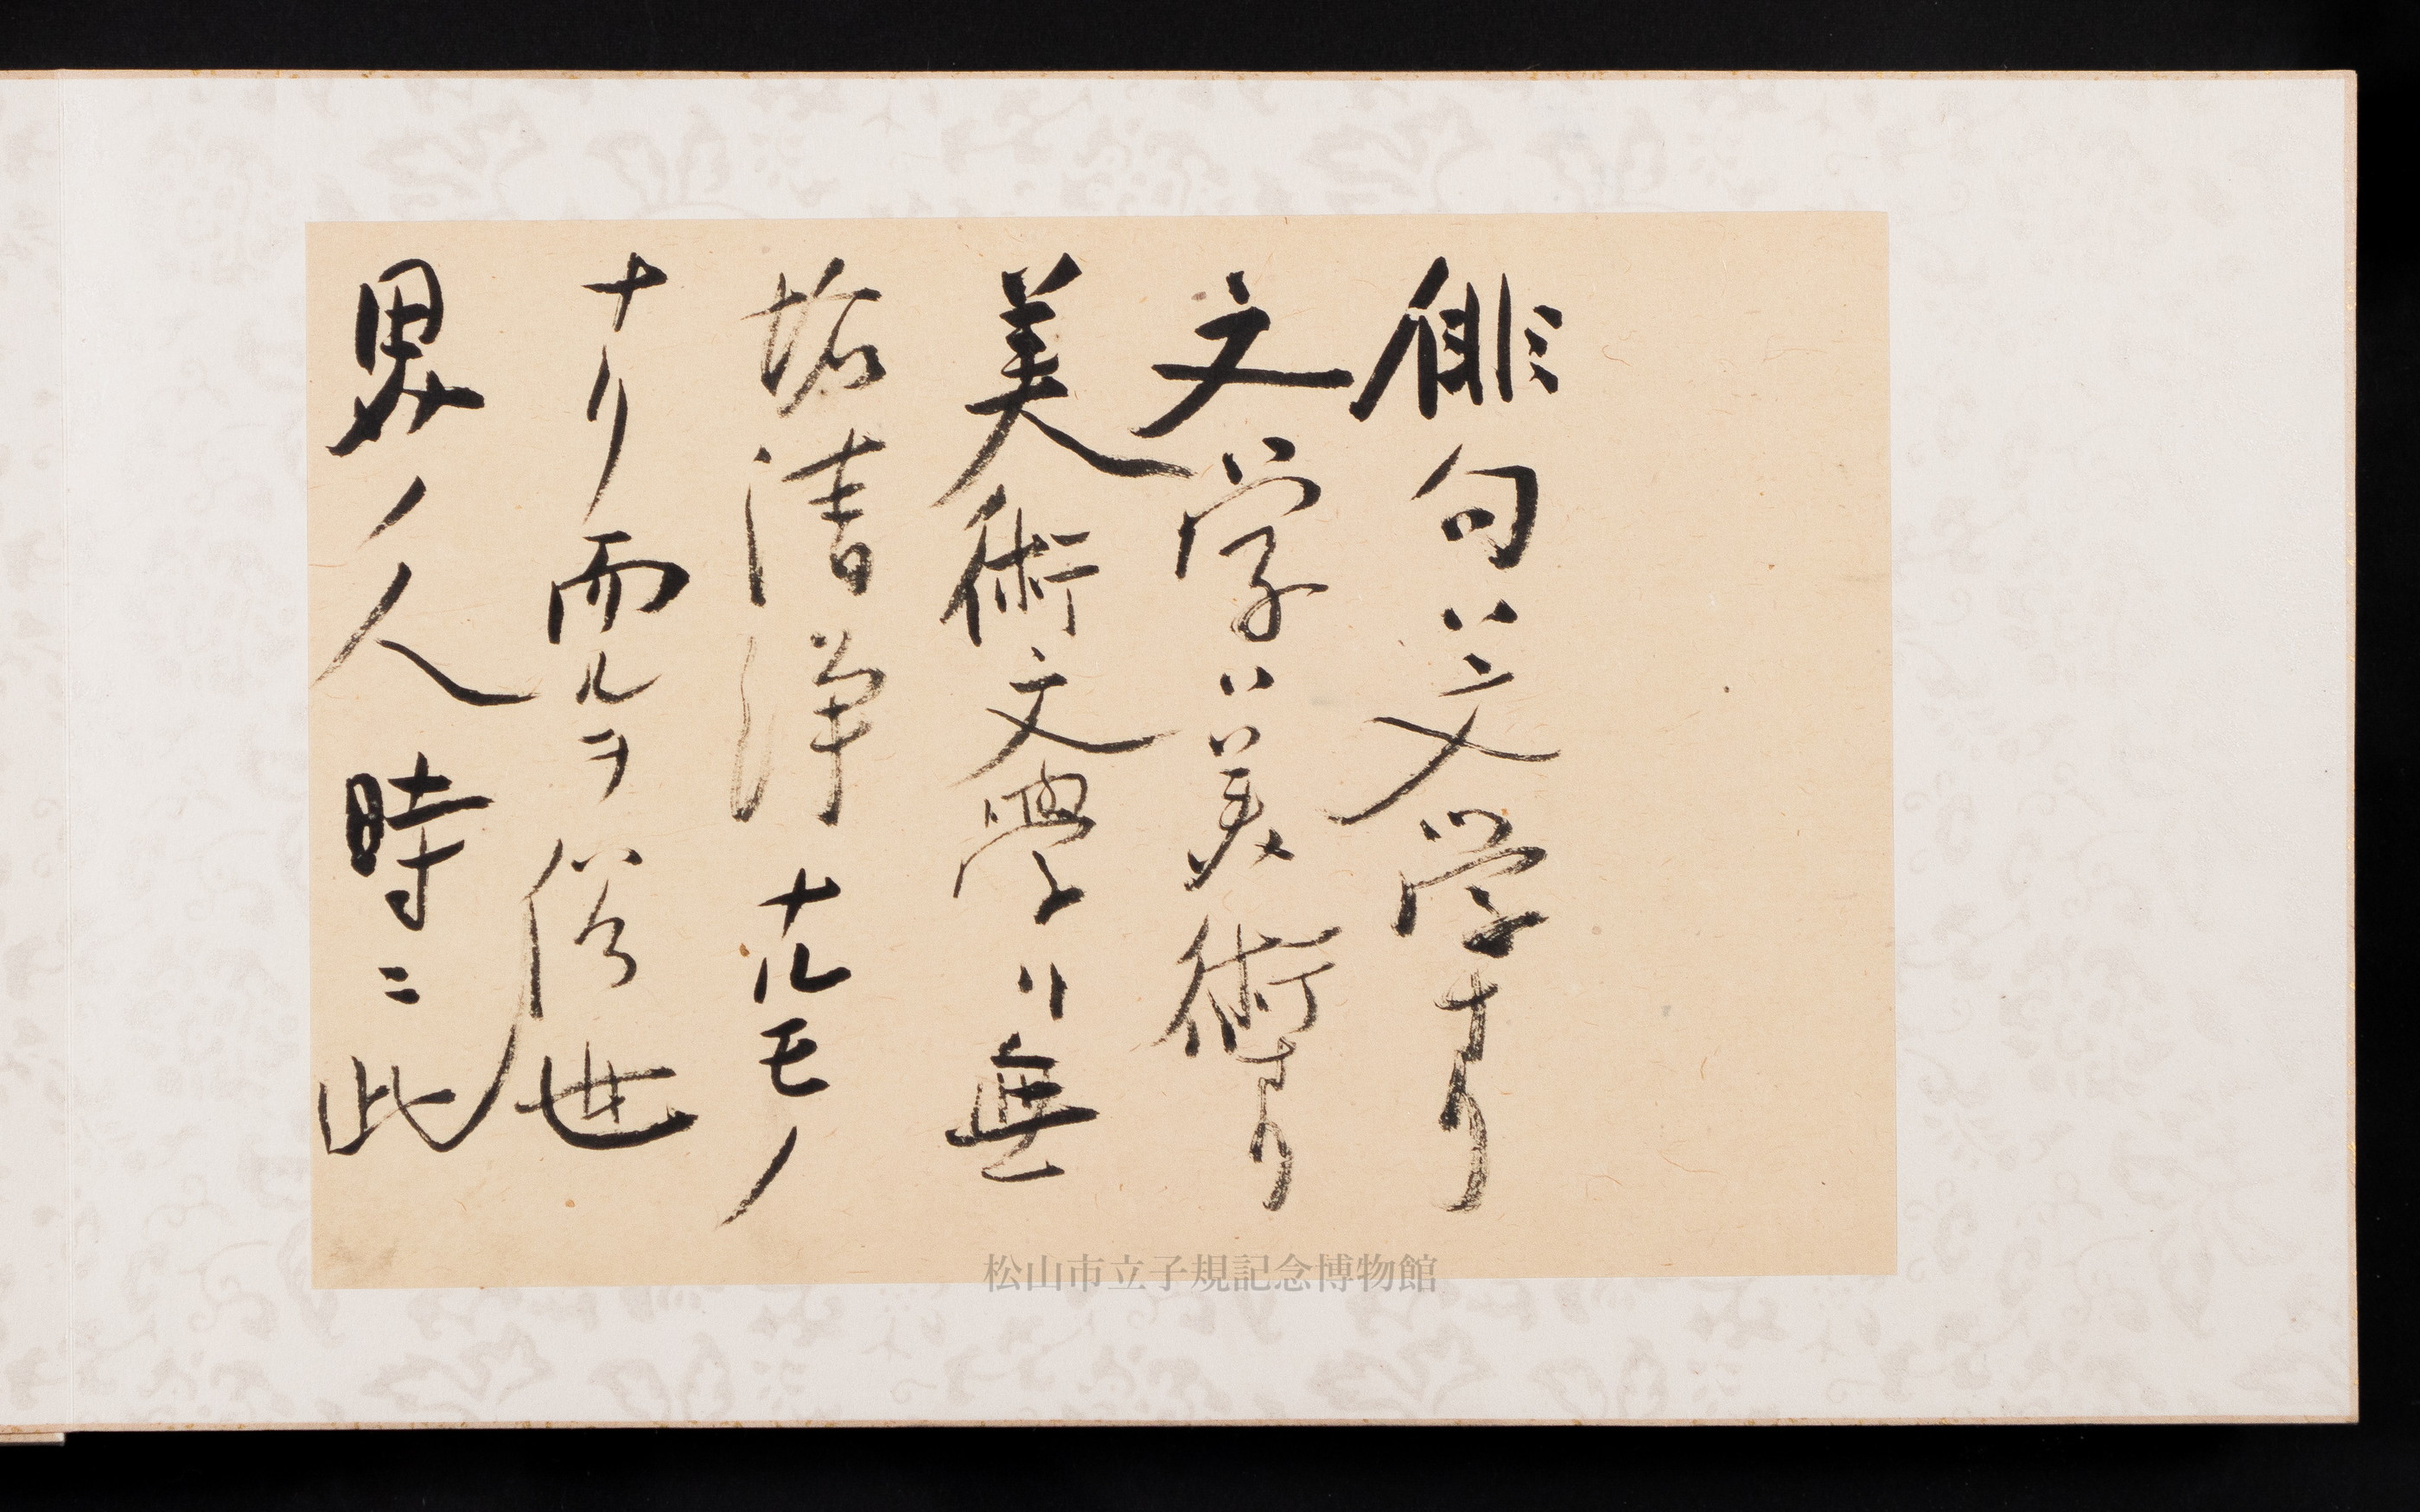 俳句ハ文学ナリ
文学ハ美術ナリ
美術文學ハ無
垢清浄ナルモノ
ナリ而ルヲ俗世
界ノ人時ニ此
松山市立子規記念博物館